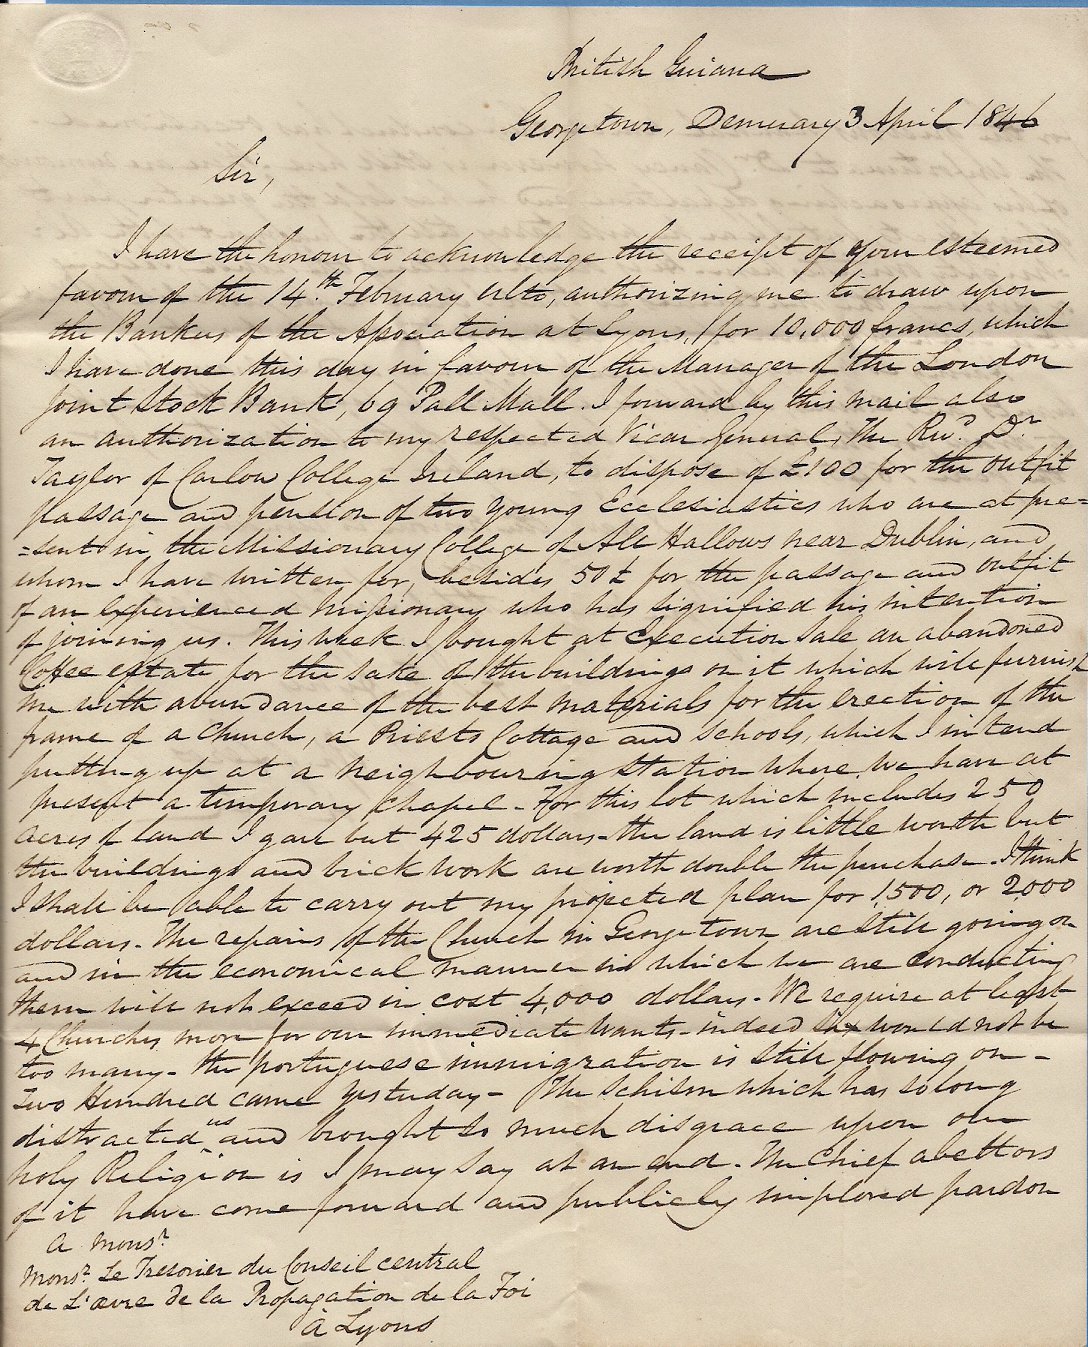 British Guiana
Georgetown, Demerary 3 April 1846
Sir,
I have the honour to acknowledge the receipt of your esteemed
favour of the 14th. February ulto, authorizing me to draw upon
the Bankers of the Association at Lyons, for 10,000 francs, which
I have done this day in favour of the Manager of the London
Joint Stock Bank, 69 Pall Mall. I forward by this mail also
an authorization to my respected Vicar General, The Revd. Dr
Taylor of Carlow College Ireland, to dispose of £100 for the outfit
passage and pension of two young Ecclesiastics who are at pre=
=sent in the Missionary College of All Hallows near Dublin, and
whom I have written for, besides 50£ for the passage and outfit
of an experienced Missionary who has signified his intention
of joining us. This week I bought at Execution Sale an abandoned
Coffee estate for the sake of the buildings on it which will furnish
me with abundance of the best materials for the erection of the
frame of a Church, a Priests Cottage and Schools, which I intend
putting up at a neighbouring station where we have at
present a temporary Chapel - For this lot which includes 250
acres of land I gave but 425 dollars - the land is little worth but
the buildings and brick work are worth double the purchase. I think
I shall be able to carry out my projected plan for 1,500, or 2,000
dollars. The repairs of the Church in Georgetown are still going on
and in the economical manner in which we are conducting
them will not exceed in cost 4,000 dollars - We require at least
4 Churches more for our immediate wants - indeed six would not be
too many - the portuguese immigration is still flowing on -
Two Hundred came yesterday - The Schism which has so long
distracted us and brought so much disgrace upon our
holy Religion is I may say at an end. The Chief abettors
of it have come forward and publicly implored pardon
A Monsr
Monsr Le Tresorier du Conseil central
de L'œvre de la Propagation de la Foi
à Lyons